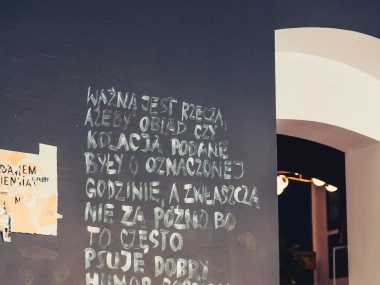 WAŻNĄ JEST RZECZĄ,
AŻEBY OBIAD CZY
KOLACJA PODANE
BYŁY O OZNACZONEJ
GODZINIE, A ZWŁASZCZA
NIE ZA PÓŹNO, BO
TO CZĘSTO
PSUJE DOBRY
HUMOR